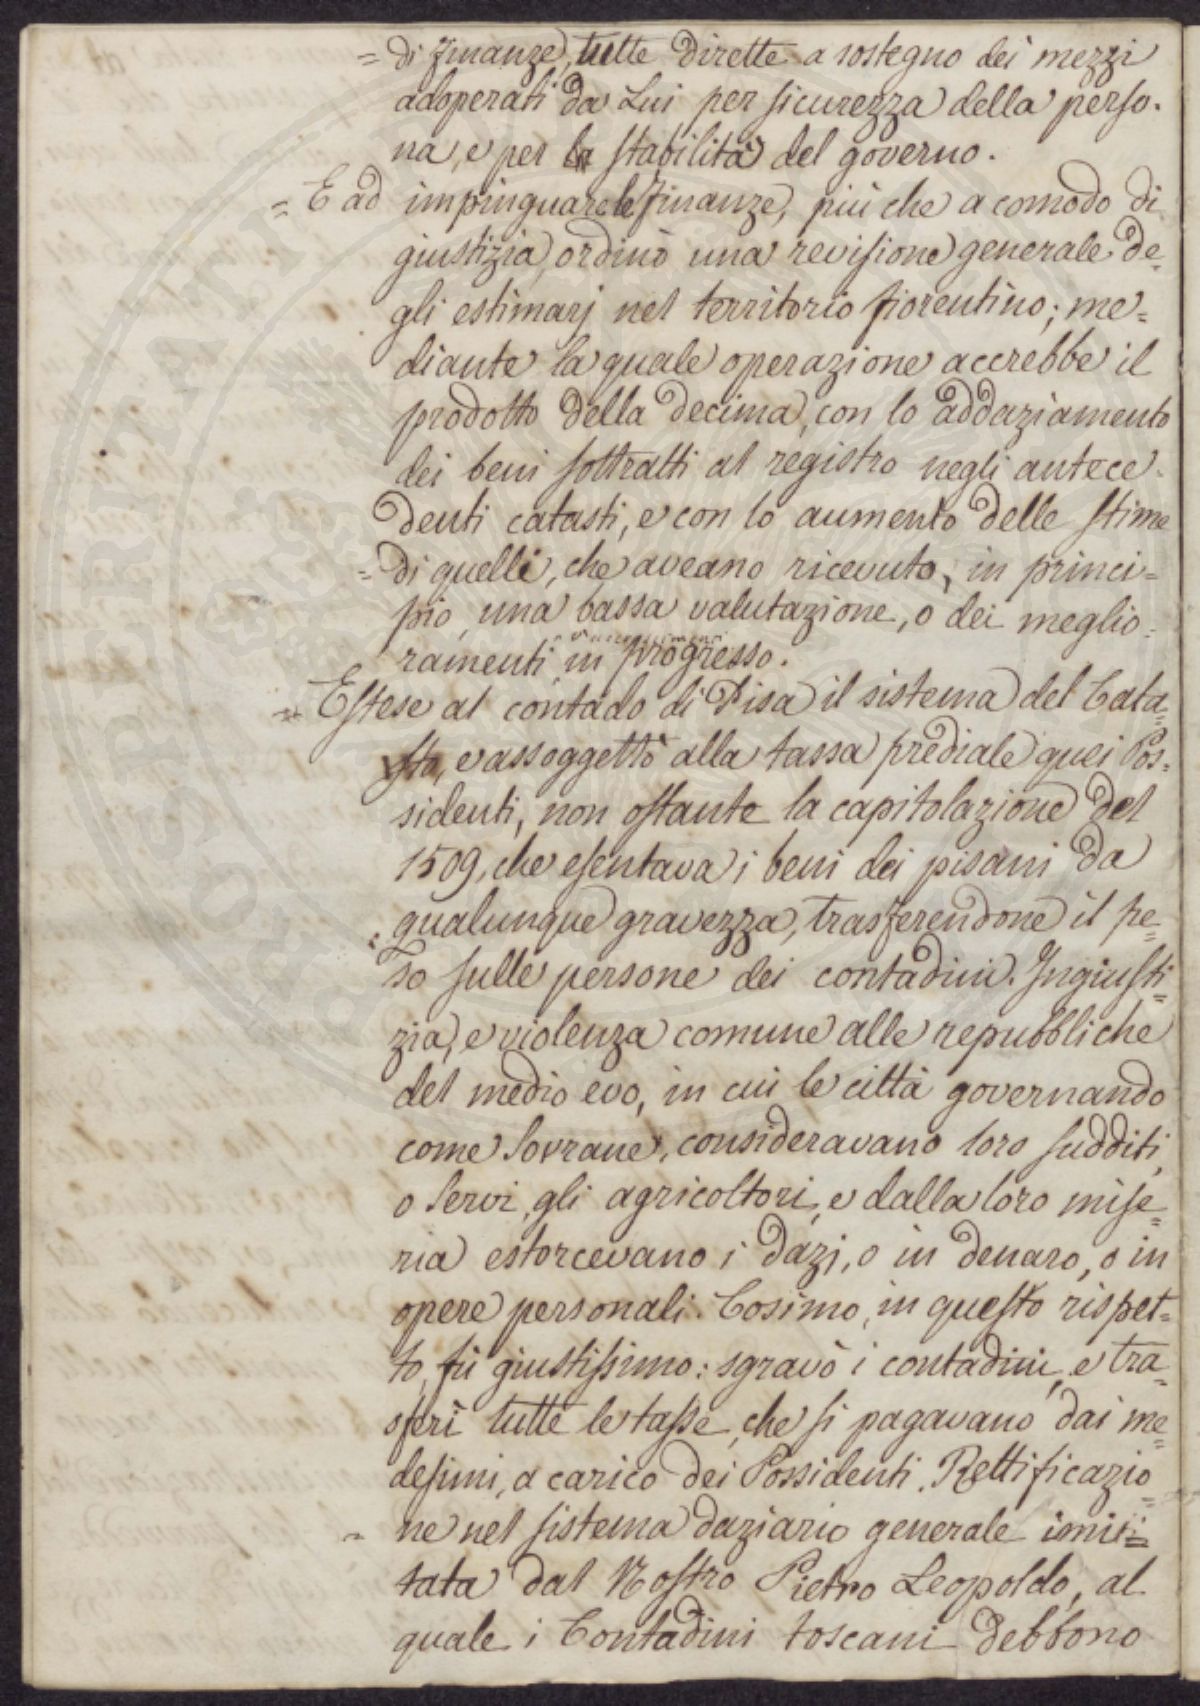 = di finanze, tutte dirette a sostegno dei mezzi
adoperati da Lui per sicurezza della perso-
na, e per la stabilità del governo.
= E ad impinguare le finanze, più che a comodo di
giustizia, ordinò una revisione generale de=
gli estimarj nel territorio fiorentino; me=
diante la quale operazione accrebbe il
prodotto della decima, con lo addaziamento
dei beni sottratti al registro negli antece-
denti catasti, e con lo aumento delle stime
= di quelli, che aveano ricevuto, in princi=
pio, una bassa valutazione, o dei meglio=
ramenti in progresso.
= Estese al contado di Pisa il sistema del Cata=
sto, e assoggettò alla tassa prediale quei Pos=
sidenti, non ostante la capitolazione del
1509, che esentava i beni dei pisani da
qualunque gravezza, trasferendone il pe=
so sulle persone dei contadini. Ingiusti=
zia, e violenza comune alle repubbliche
del medio evo, in cui le città governando
come Sovrane, consideravano loro sudditi,
o servi, gli agricoltori, e dalla loro mise=
ria estorcevano i dazj, o in denaro, o in
opere personali. Cosimo, in questo rispet=
to, fù giustissimo: sgravò i contadini, e tra=
sferì tutte le tasse, che si pagavano dai me=
desimi, a carico dei Possidenti. Rettificazio=
= ne nel sistema daziario generale imi=
tata dal Nostro Pietro Leopoldo, al
quale i Contadini toscani debbono
PROSPERITATI